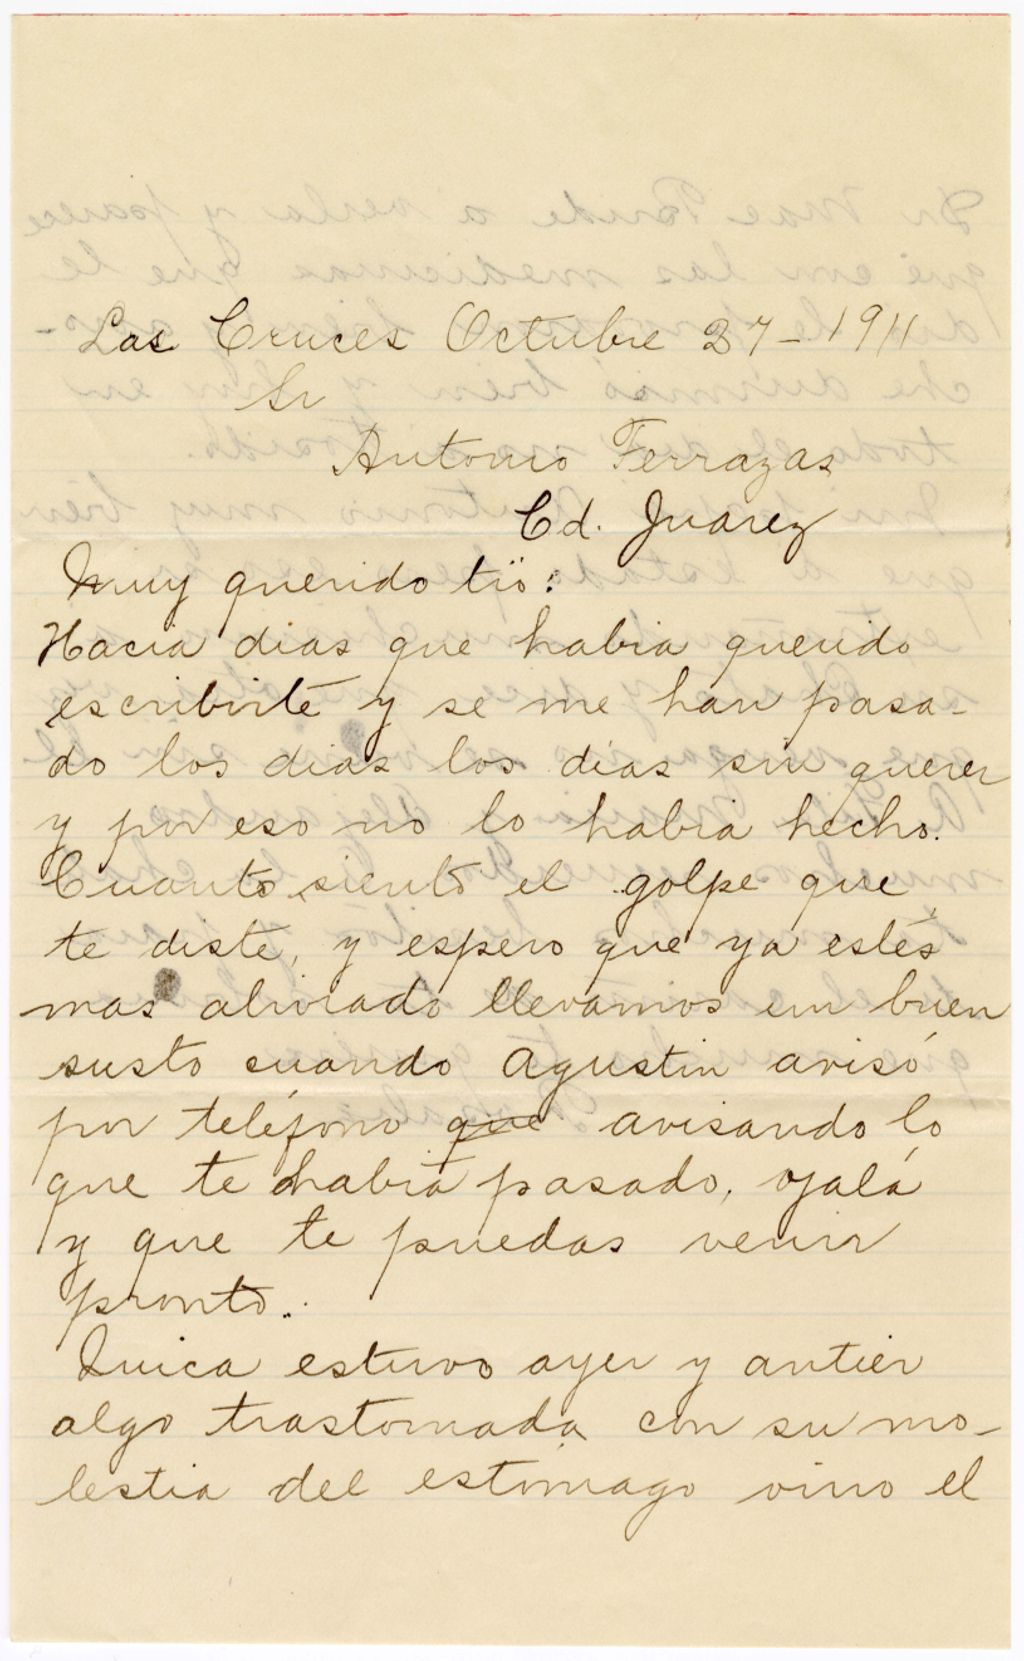 Las Cruces Octubre 27-1911
Sr
Antonio Terrazas
Cd. Juarez
Muy querido tio:
Hacia dias que habia querido
escribirte y se me han pasa-
do los dias los dias sin querer
y por eso no lo habia hecho.
Cuanto siento el golpe que
te diste, y espero que ya estés
mas aliviado llevamos un buen
susto cuando Agustin avisó
por teléfono que avisando lo
que te habia pasado, ojalá
y que te puedas venir
pronto.
estuvo ayer y antier
algo trastornada con su mo-
lestia del estomago vino el